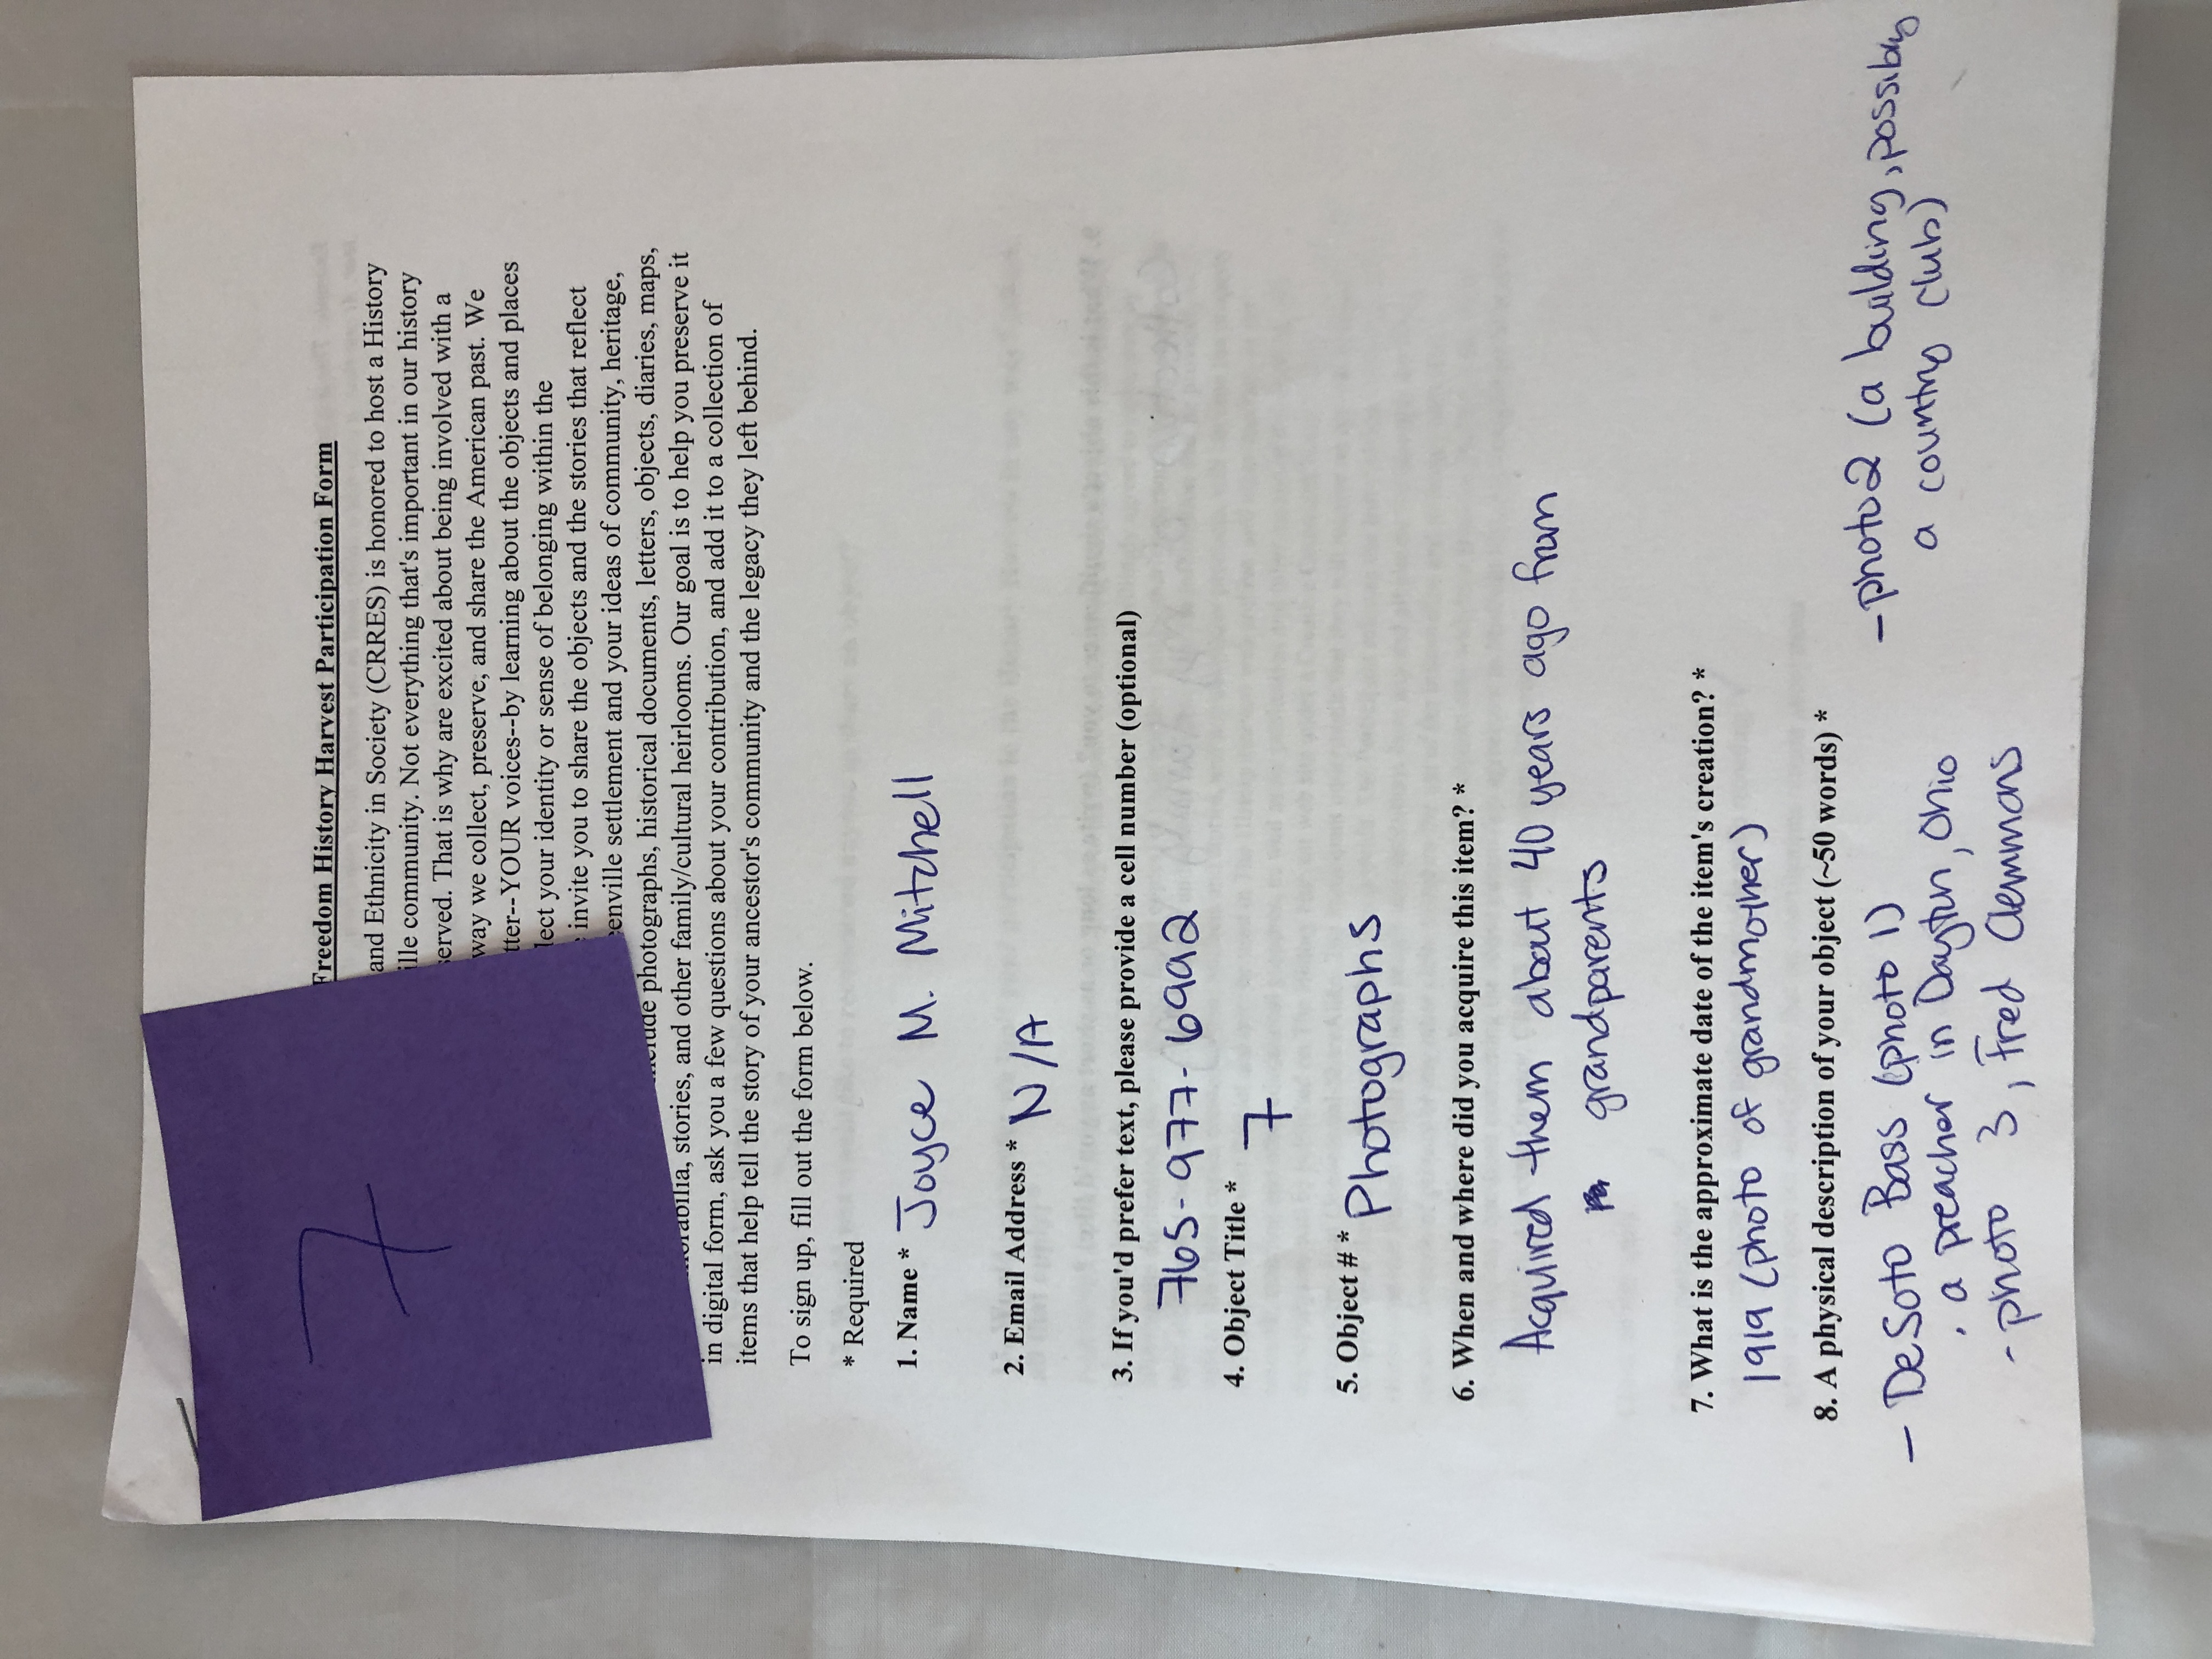 7
Freedom History Harvest Participation Form
and Ethnicity in Society (CRRES) is honored to host a History
ille community. Not everything that's important in our history
served. That is why are excited about being involved with a
way we collect, preserve, and share the American past. We
tter--YOUR voices--by learning about the objects and places
lect your identity or sense of belonging within the
invite you to share the objects and the stories that reflect
enville settlement and your ideas of community, heritage,
include photographs, historical documents, letters, objects, diaries, maps,
morabilia, stories, and other family/cultural heirlooms. Our goal is to help you preserve it
in digital form, ask you a few questions about your contribution, and add it to a collection of
items that help tell the story of your ancestor's community and the legacy they left behind.
To sign up, fill out the form below.
* Required
1. Name * Joyce M. Mitchell
2. Email Address * N/A
3. If you'd prefer text, please provide a cell number (optional)
765-977-6992
4. Object Title * 7
5. Object # * Photographs
6. When and where did you acquire this item? *
Acquired them about 40 years ago from
grandparents
7. What is the approximate date of the item's creation? *
1919 (photo of grandmother)
8. A physical description of your object (~50 words) *
- DeSoto Bass (photo 1)
. a preacher in Dayton, Ohio
- photo 3, Fred Clemmons
- photo 2 (a building, possibly
a country club)